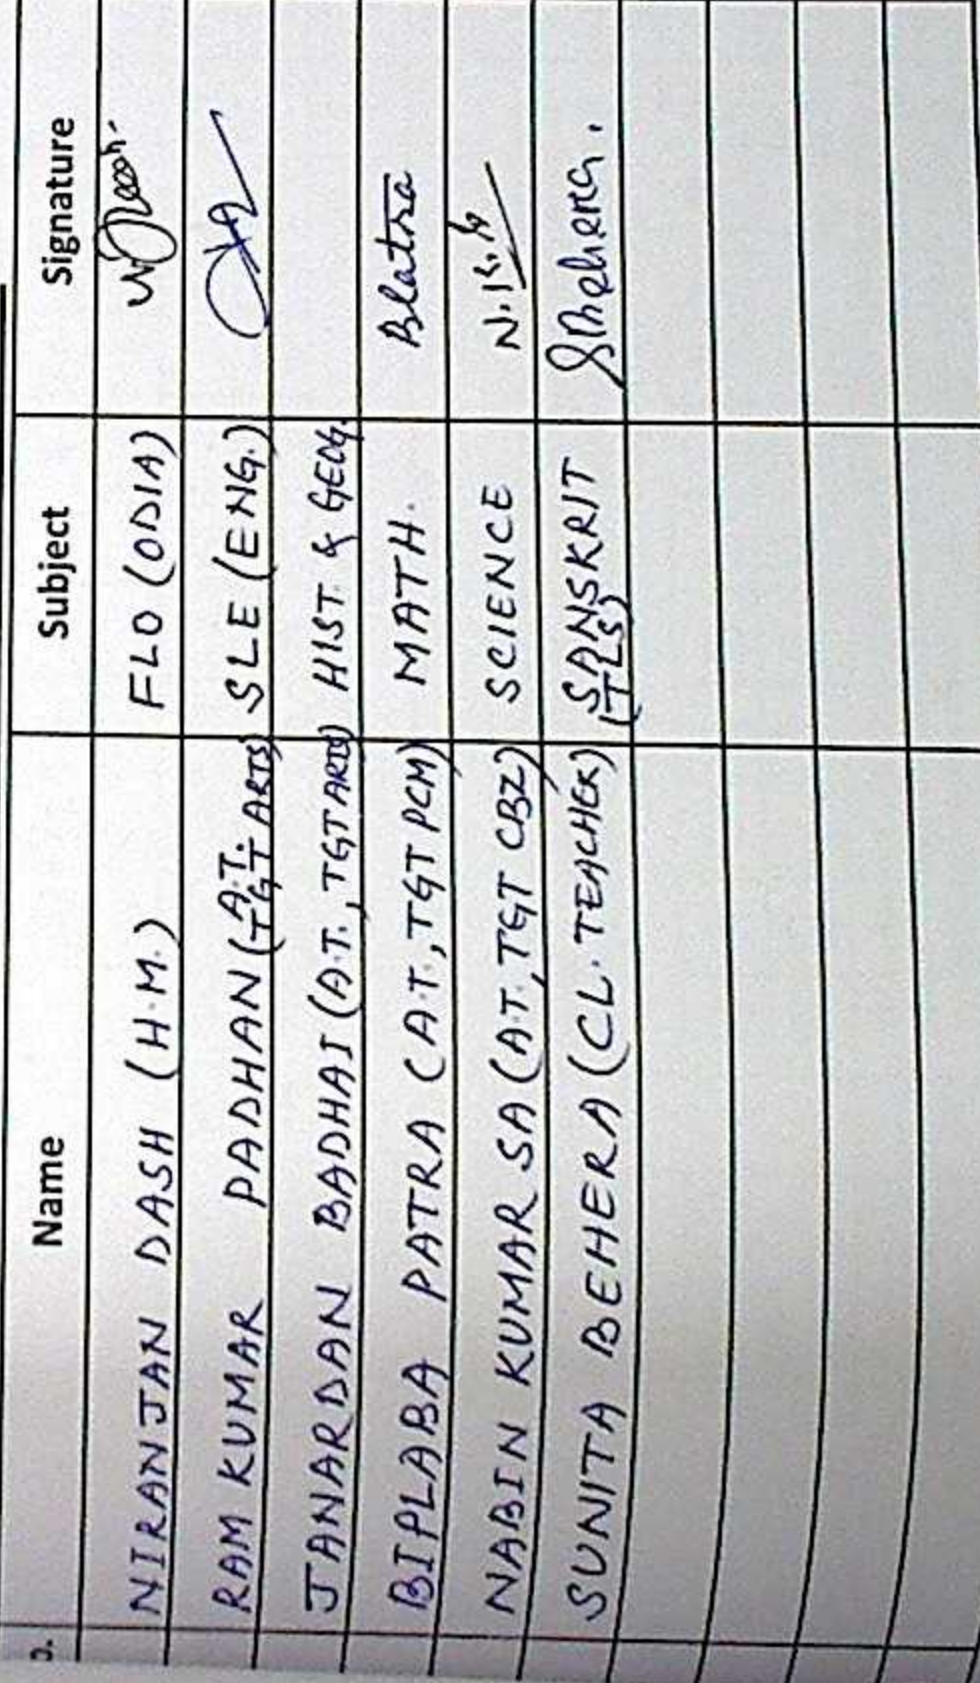 Name Subject Signature
NIRANJAN DASH (H.M.) FLO (ODIA)
RAM KUMAR PADHAN (A.T. TGT ARTS) SLE (ENG.)
JANARDAN BADHAI (A.T., TGT ARTS) HIST & GEOG.
BIPLABA PATRA (A.T., TGT PCM) MATH. BPatra
NABIN KUMAR SA (A.T., TGT CBZ) SCIENCE
SUNITA BEHERA (CL. TEACHER) SANSKRIT (TLS) SBehera.